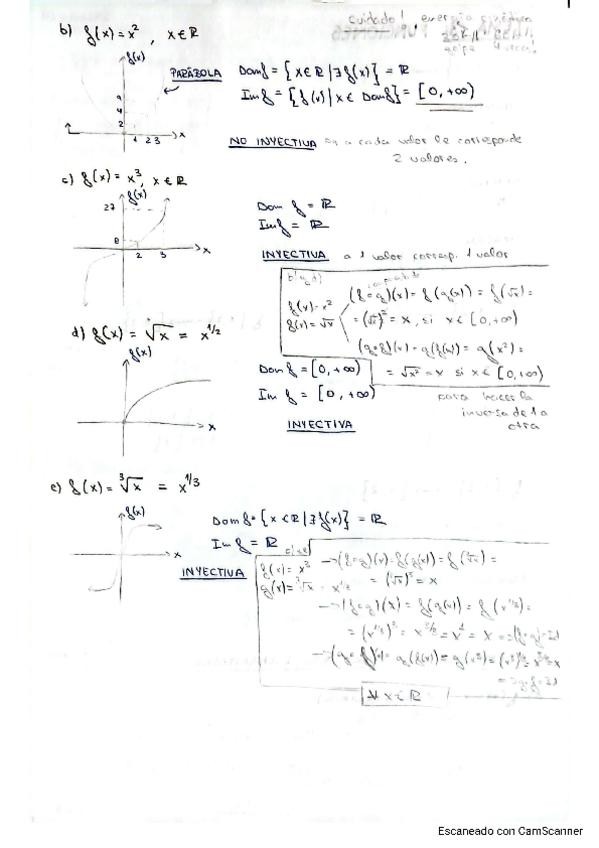 Cuidado!, energía cinética
b) f(x) = x², x ∈ ℝ
f(x)
PARÁBOLA
Dom f = {x ∈ ℝ | ∃ f(x)} = ℝ
Im f = {f(x) | x ∈ Dom f} = [0, +∞)
9
4
2
1 2 3
x
NO INYECTIVA a cada valor le corresponde
2 valores.
c) f(x) = x³, x ∈ ℝ
f(x)
27
8
2 3
x
Dom f = ℝ
Im f = ℝ
INYECTIVA a 1 valor corresp. 1 valor
f(x) = x²
g(x) = √x
(f∘g)(x) = f(g(x)) = f(√x) =
= (√x)² = x, si x ∈ [0, +∞)
(g∘f)(x) = g(f(x)) = g(x²) =
= √x² = x si x ∈ [0, +∞)
para hacer la
inversa de la
otra
d) f(x) = √x = x^1/2
f(x)
x
Dom f = [0, +∞)
Im f = [0, +∞)
INYECTIVA
e) f(x) = ³√x = x^1/3
f(x)
x
Dom f = {x ∈ ℝ | ∃ f(x)} = ℝ
Im f = ℝ
INYECTIVA
f(x) = x³
g(x) = ³√x = x^1/3
→ (f∘g)(x) = f(g(x)) = f(³√x) =
= (³√x)³ = x
→ (f∘g)(x) = f(g(x)) = f(x^1/3) =
= (x^1/3)³ = x^3/3 = x¹ = x
→ (g∘f)(x) = g(f(x)) = g(x³) = (x³)^1/3 = x^3/3 = x
∀ x ∈ ℝ
Escaneado con CamScanner